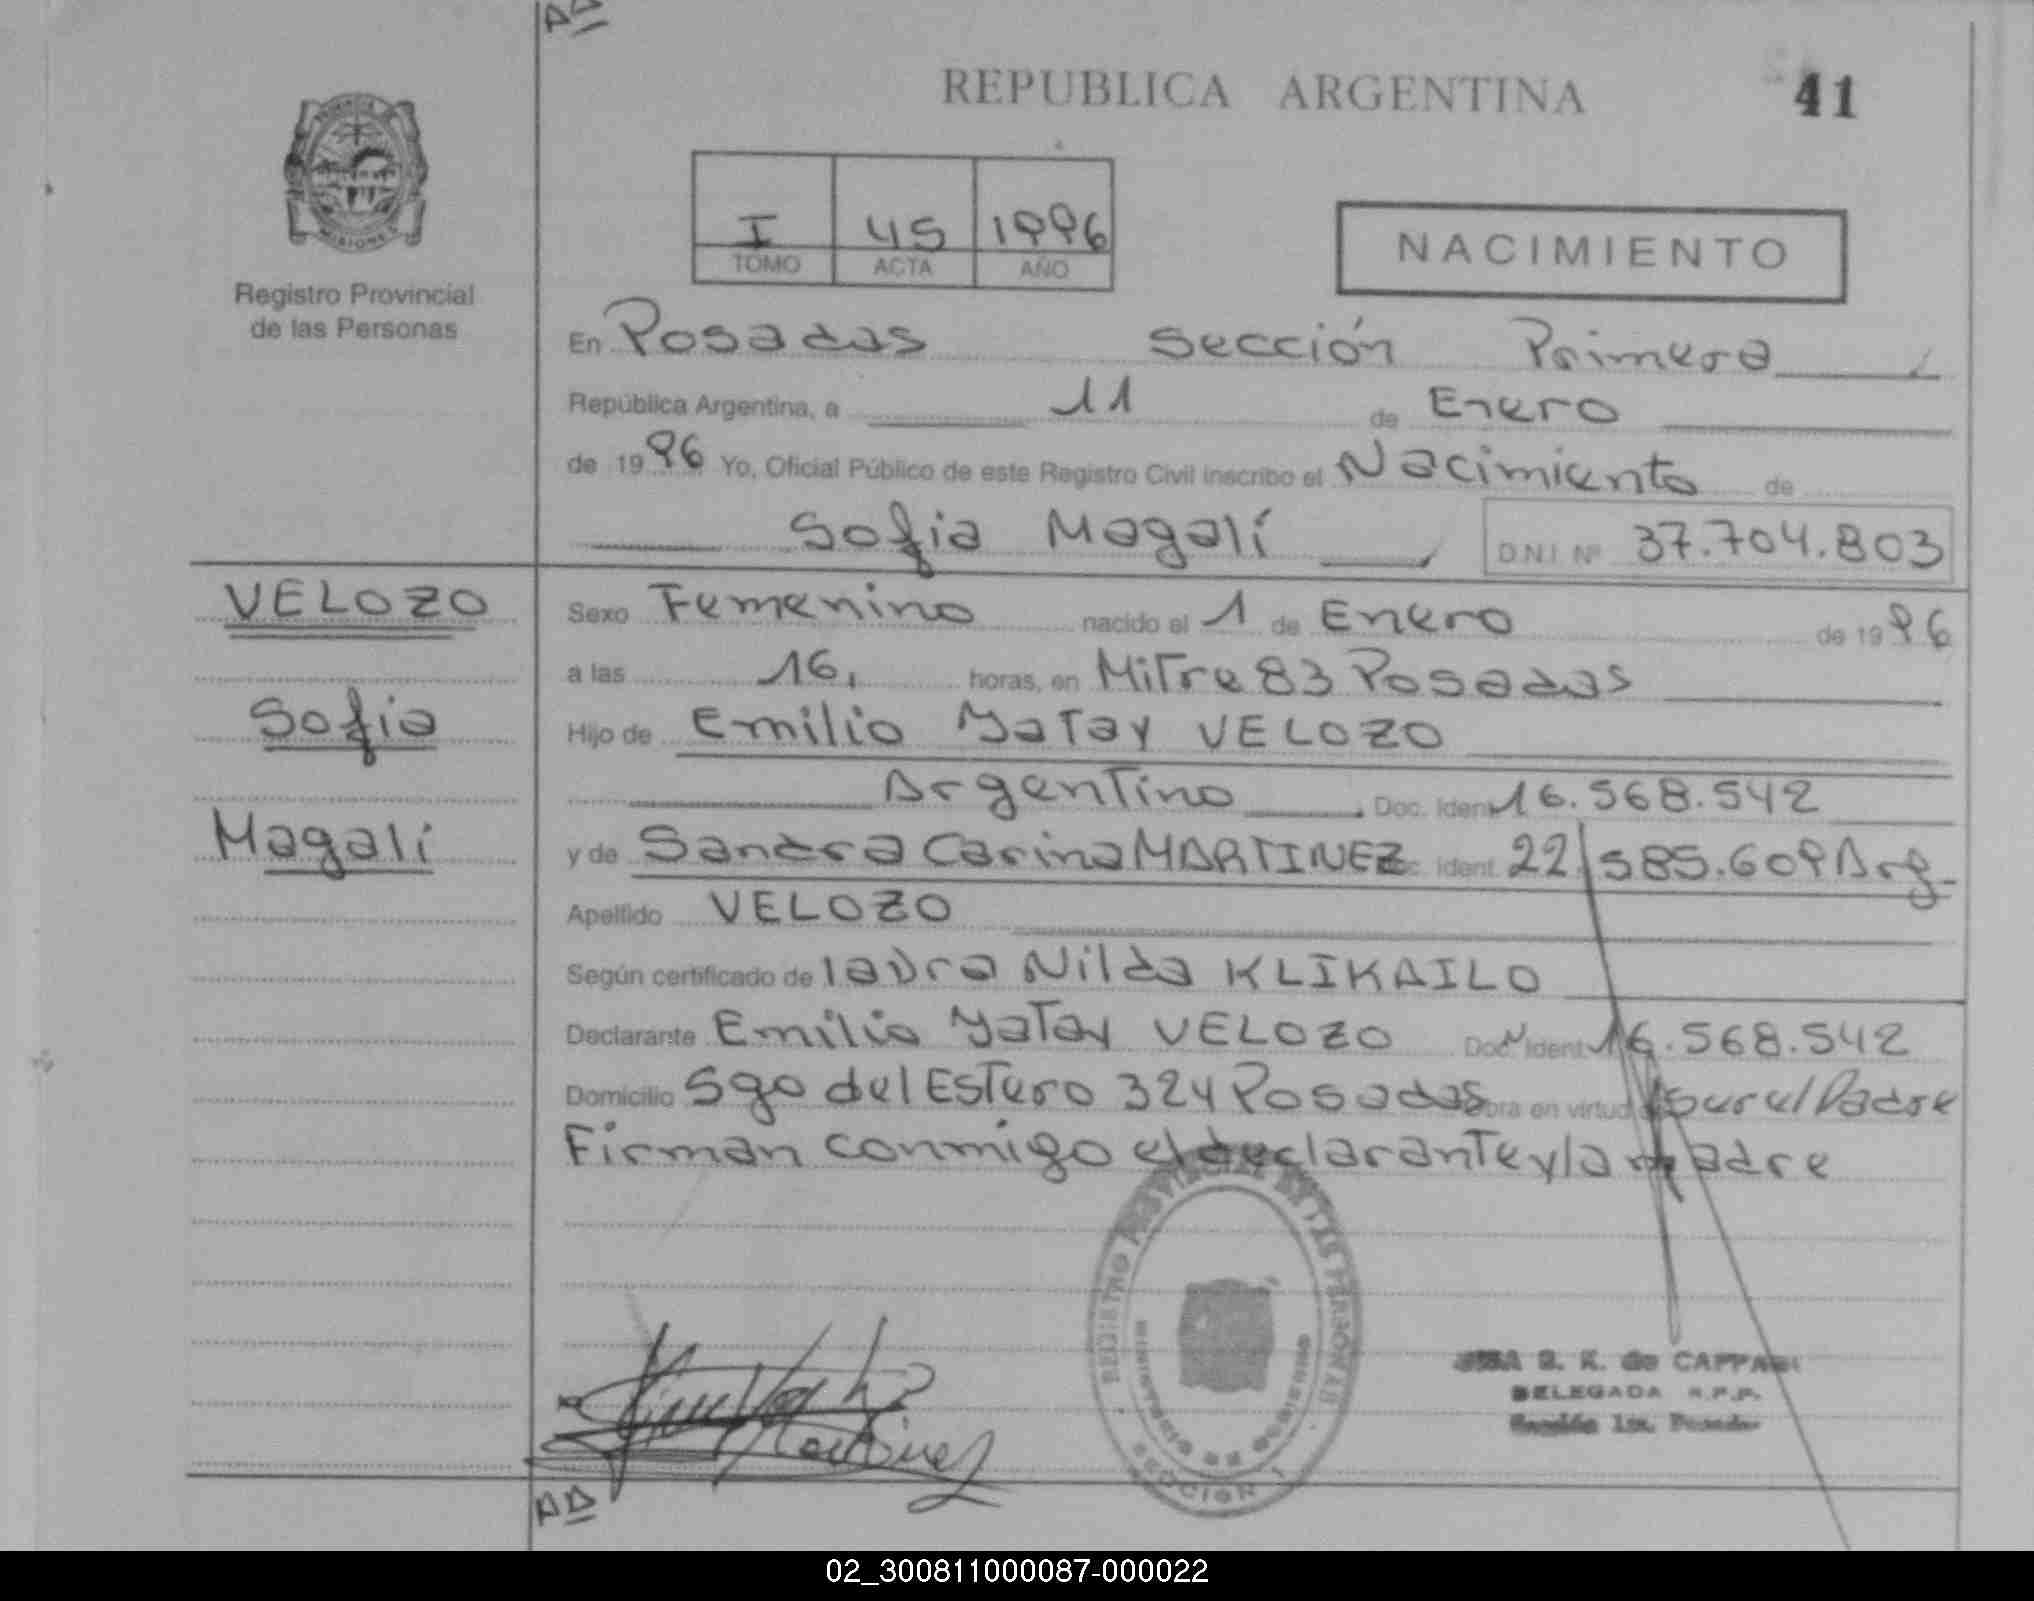 AD
REPUBLICA ARGENTINA
41
PROVINCIA
MISIONES
Registro Provincial
de las Personas
I 45 1996
TOMO ACTA AÑO
NACIMIENTO
En Posadas Sección Primera
República Argentina, a 11 de Enero
de 1996 Yo, Oficial Público de este Registro Civil inscribo el Nacimiento de
Sofia Magalí D.N.I. Nº 37.704.803
VELOZO
Sofia
Magalí
Sexo Femenino nacido el 1 de Enero de 1996
a las 16, horas, en Mitre 83 Posadas
Hijo de Emilio Yatay VELOZO
Argentino Doc. Ident. 16.568.542
y de Sandra Carina MARTINEZ Doc. Ident. 22.585.609 Arg.
Apellido VELOZO
Según certificado de la Dra Nilda KLIKAILO
Declarante Emilio Yatay VELOZO Doc. Ident. 16.568.542
Domicilio Sgo del Estero 324 Posadas Obra en virtud ser el Padre
Firman conmigo el declarante y la madre
REGISTRO PROVINCIAL DE LAS PERSONAS
MINISTERIO DE GOBIERNO
SECCION 1
Martinez
DELEGADA R.P.P.
Sección 1ra. Posadas
AD
02_300811000087-000022